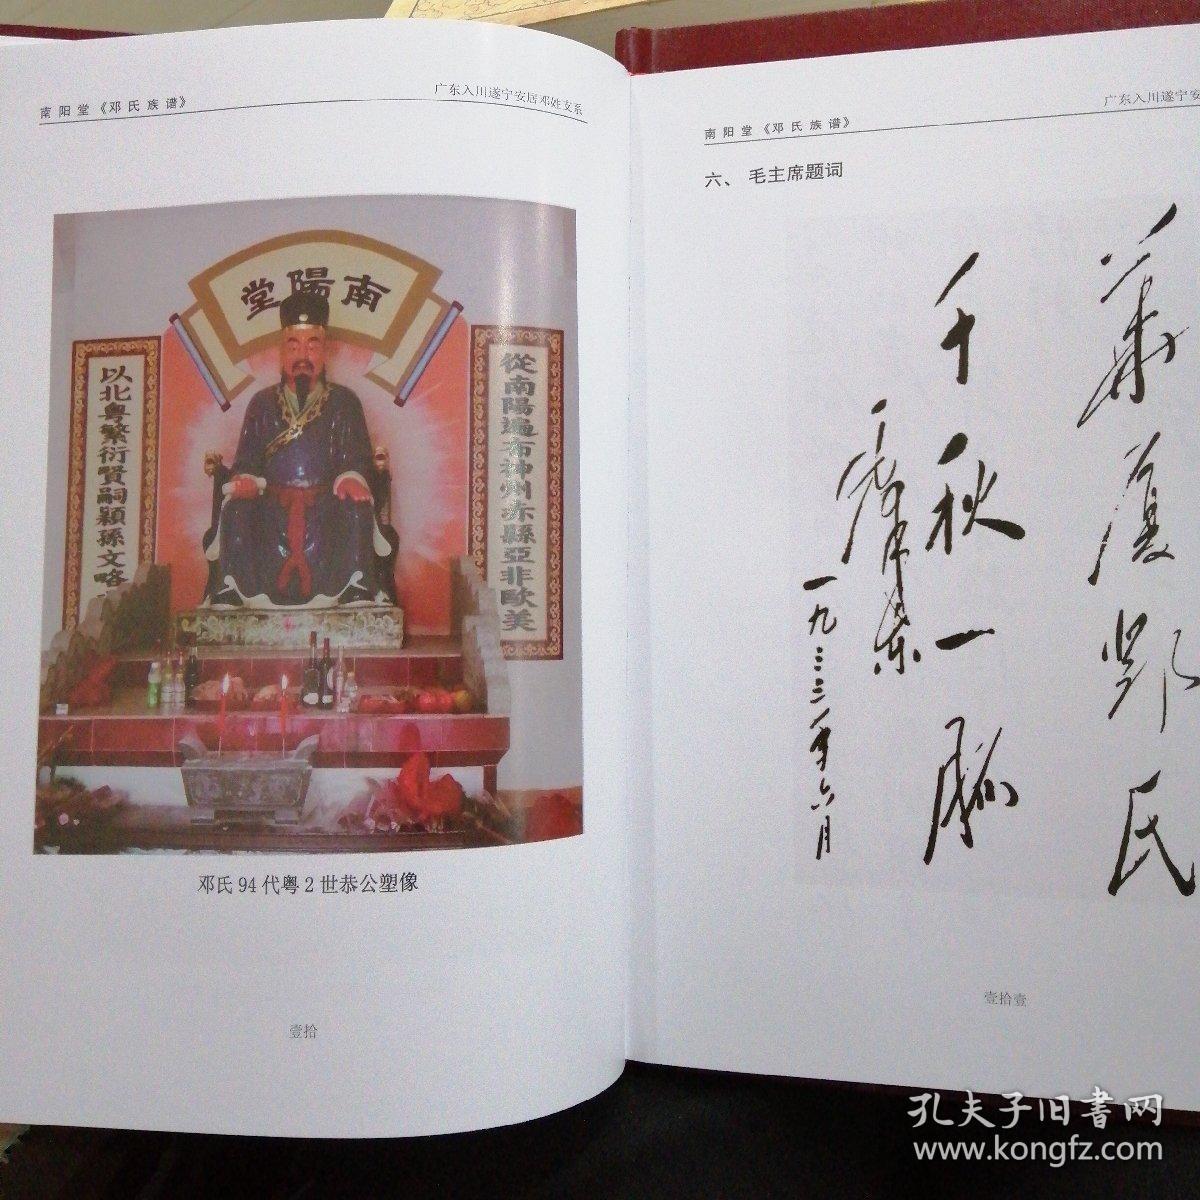 南阳堂《邓氏族谱》
广东入川遂宁安居邓姓支系
南陽堂
從南陽遍布神州赤縣亞非歐美
以北粤繁衍賢嗣穎孫文略
邓氏94代粤2世恭公塑像
壹拾
南阳堂《邓氏族谱》
广东入川遂宁安
六、 毛主席题词
华厦邓氏
千秋一脉
一九三三年六月
壹拾壹
孔夫子旧书网
www.kongfz.com